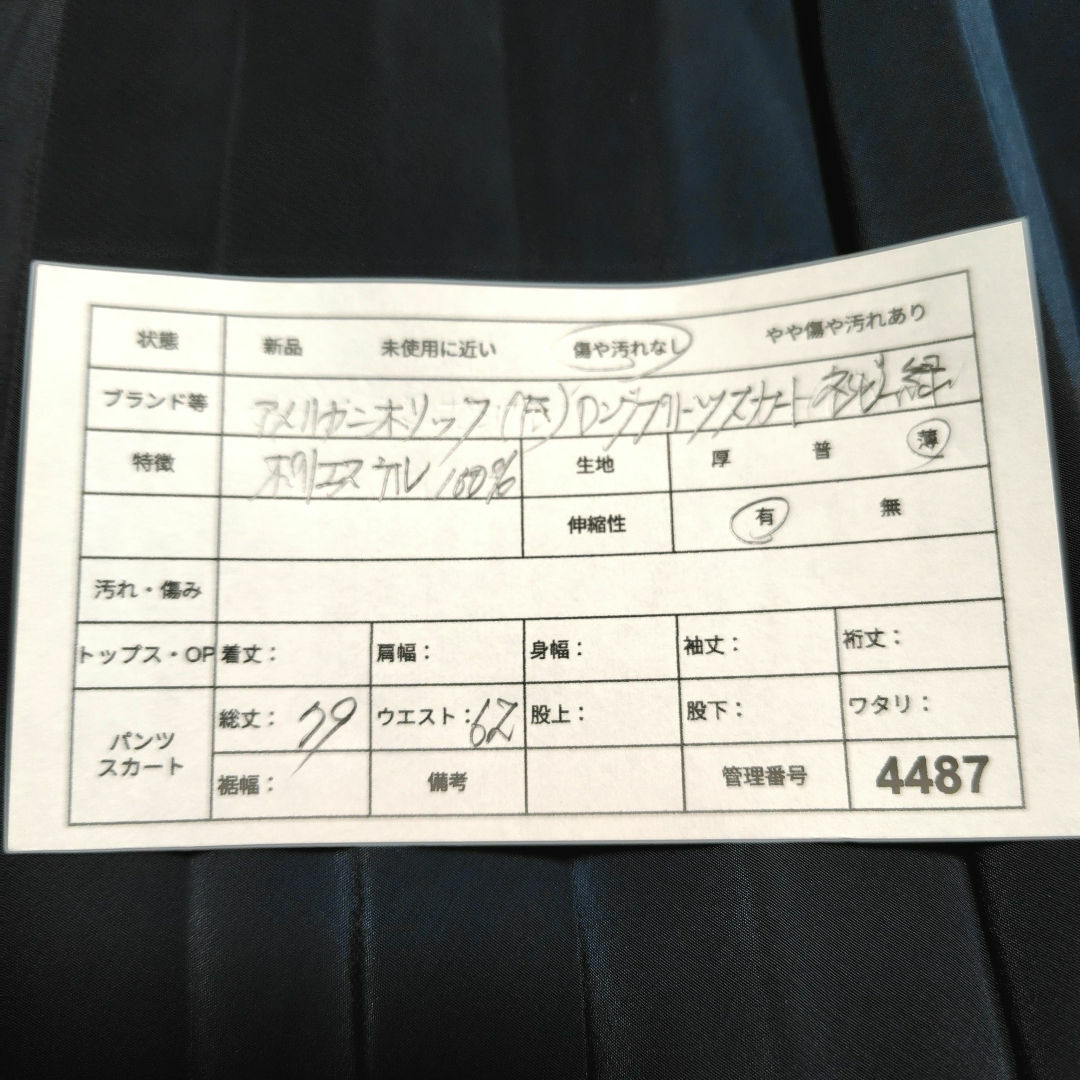 状態 新品 未使用に近い 傷や汚れなし やや傷や汚れあり
ブランド等 アメリカンホリック ロングプリーツスカート ネイビー 紺
特徴 ポリエステル 100% 生地 厚 普 薄
伸縮性 有 無
汚れ・傷み
トップス・OP 着丈: 肩幅: 身幅: 袖丈: 裄丈:
パンツ スカート 総丈: 79 ウエスト: 62 股上: 股下: ワタリ:
裾幅: 備考 管理番号 4487